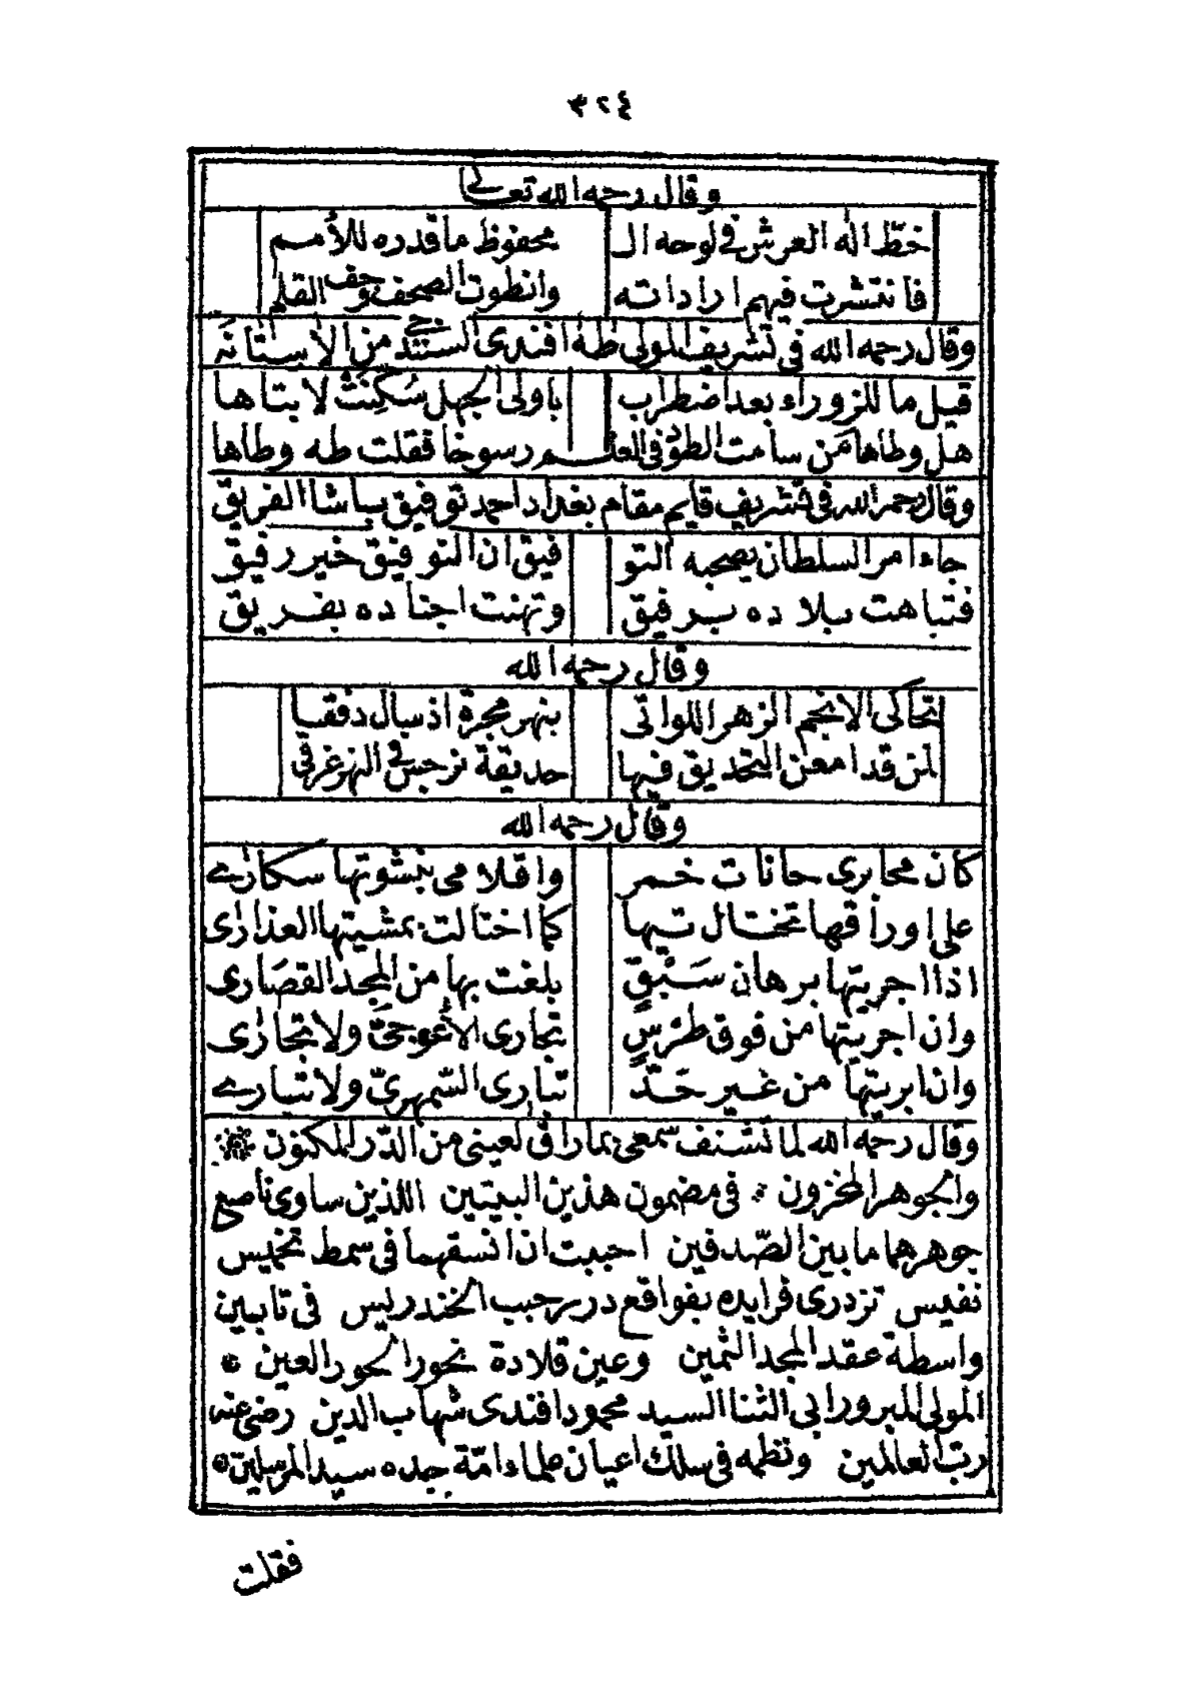 ٣٢٤
وقال رحمه الله تعالى
خطّ اله العرش في لوحه ال محفوظ ما قدره للأمم
فانتشرت فيهم اراداته وانطوت الصحف وجف القلم
وقال رحمه الله في تشريف المولى طه افندى السنندجي من الاستانه
قيل ما للزوراء بعد اضطراب باولى الجهل سُكِنَتْ لابتاها
هل وطاها مَن سامت الطود في العلم رسوخا فقلت طه وطاها
وقال رحمه الله في تشريف قايم مقام بغداد احمد توفيق پاشا الفريق
جاء امر السلطان يصحبه التو فيق ان التوفيق خير رفيق
فتباهت بلاده برفيق وتهنت اجناده بفريق
وقال رحمه الله
تحاكى الانجم الزهر اللواتى بنهر مجرة اذ سال دفقا
لمن قد امعن التحديق فيها حديقة نرجس في النهر غرقى
وقال رحمه الله
كان محابرى حانات خمر واقلامى بنشوتها سكارے
على اوراقها تختال تيها كما اختالت بمشيتها العذارى
اذا اجريتها برهان سَبْقٍ بلغت بها من المجد القصارى
وان اجريتها من فوق طرْسٍ تجارى الأعوجىّ ولا تجارى
وان ابريتها من غير حَدّ تبارى السّمهرىّ ولا تبارے
وقال رحمه الله لما تشنف سمعى بما راق لعينى من الدّر المكنون
والجوهر المخزون في مضمون هذين البيتين اللذين ساوى ناصع
جوهرهما ما بين الصّدفين احببت ان انسقهما في سمط تخميس
نفيس تزدرى فرايده بفواقع درر حبب الخندريس في تابين
واسطة عقد المجد الثمين وعين قلادة نحور الحور العين
المولى المبرور ابى الثنا السيد محمود افندى شهاب الدين رضى عنه
رب العالمين ونظمه في سلك اعيان علماء امّة جده سيد المرسلين
فقلت